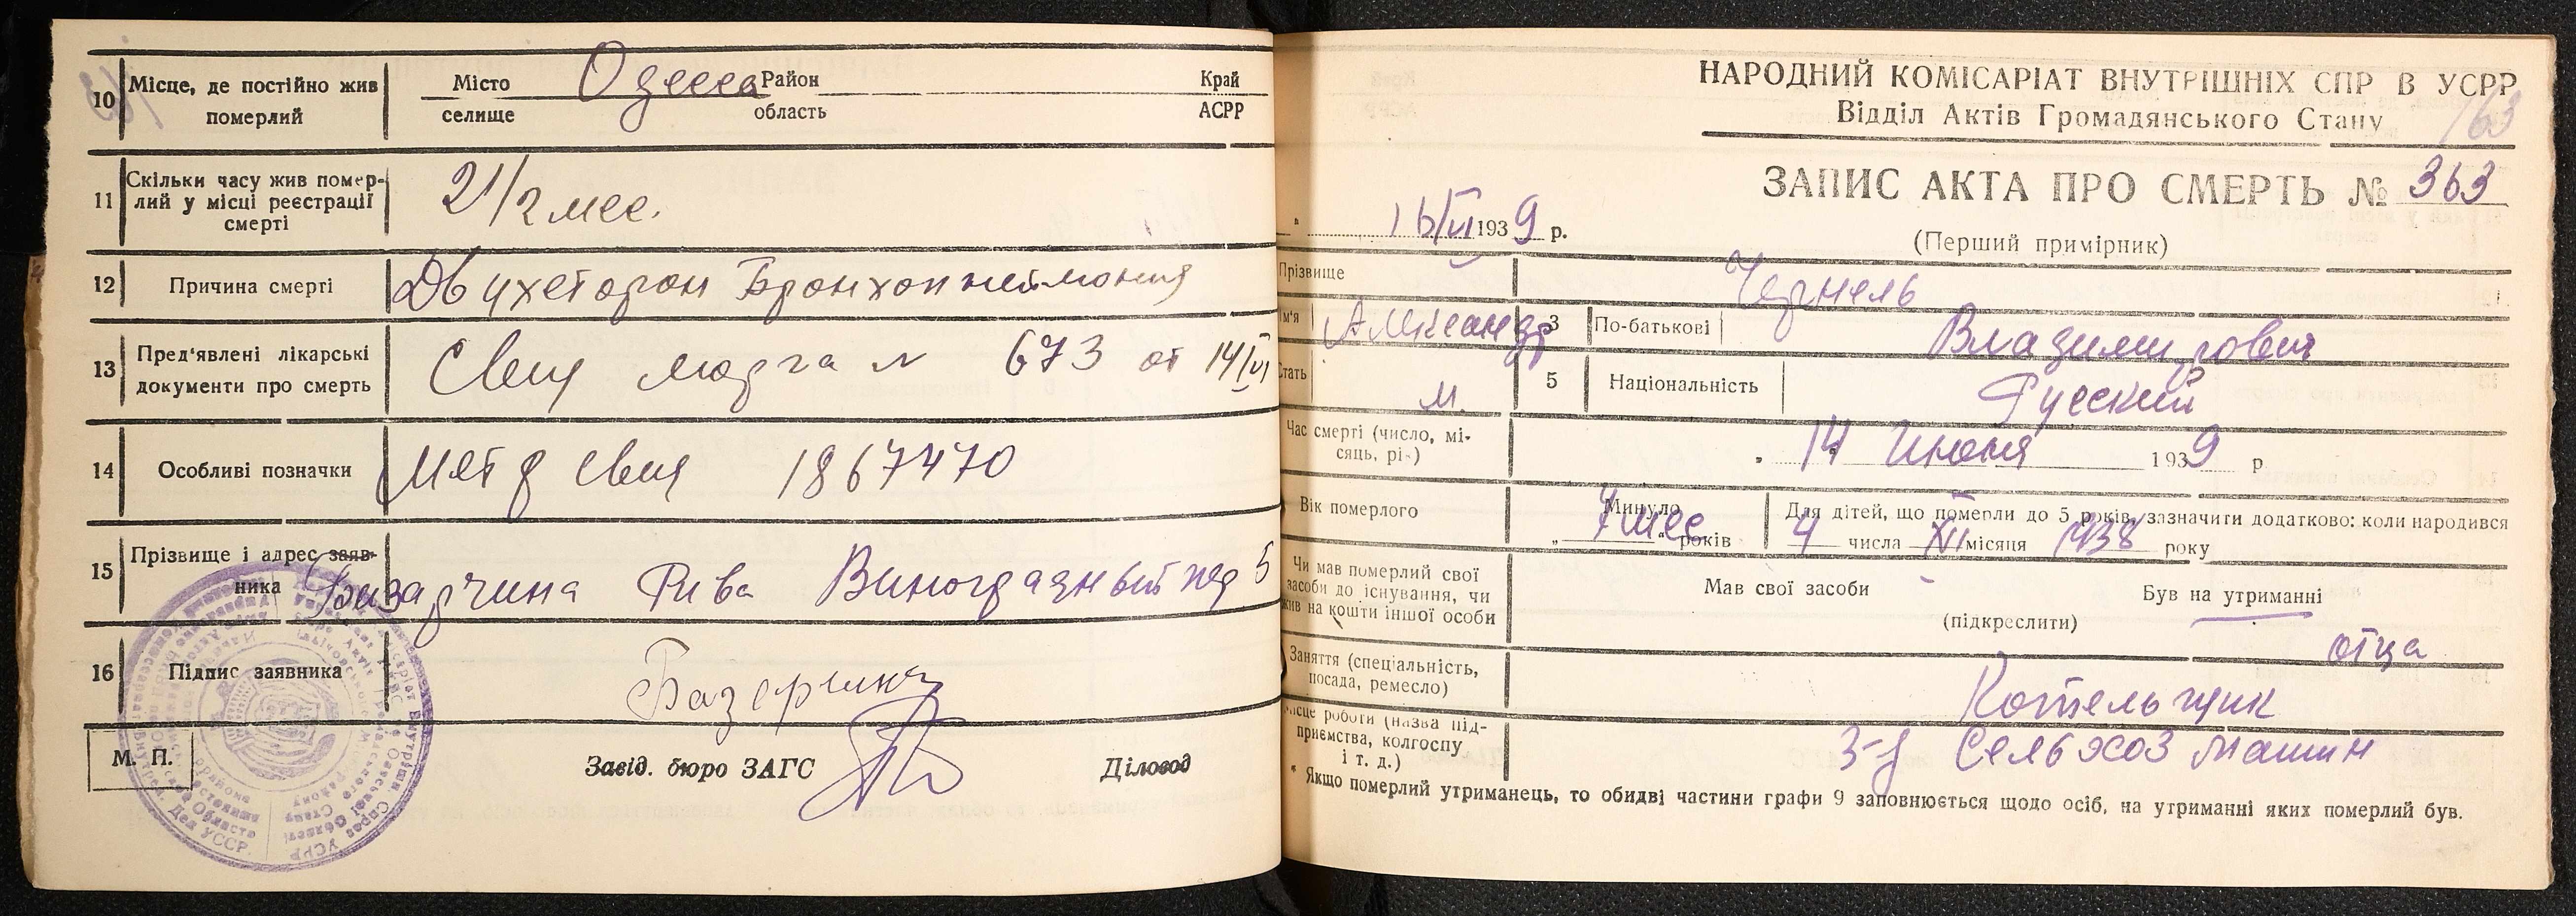 10 Місце, де постійно жив померлий
Місто селище Одесса Район область Край АСРР
11 Скільки часу жив помер-
лий у місці реєстрації
смерті
2 1/2 мес.
12 Причина смерті Двухсторон Бронхопневмония
13 Пред'явлені лікарські
документи про смерть
Свид морга N 673 от 14/VI
14 Особливі позначки Метр свид 1867470
15 Прізвище і адрес заяв-
ника
Рива Виноградный пер 5
16 Підпис заявника
М. П.
Завід. бюро ЗАГС Діловод
НАРОДНИЙ КОМІСАРІАТ ВНУТРІШНІХ СПР В УСРР
Відділ Актів Громадянського Стану
163
ЗАПИС АКТА ПРО СМЕРТЬ № 363
„ 16/VI 1939 р.
(Перший примірник)
Прізвище Чернель
Ім'я Александр 3 По-батькові Владимирович
Стать М. 5 Національність Русский
Час смерті (число, мі-
сяць, рік)
„ 14 " Июня 1939 р
Вік померлого
Минуло
„ 7 мес " років
Для дітей, що померли до 5 років, зазначити додатково: коли народився
4 числа XI місяця 1938 року
Чи мав померлий свої
засоби до існування, чи
жив на кошти іншої особи
Мав свої засоби Був на утриманні
(підкреслити)
отца
Заняття (спеціальність,
посада, ремесло)
Котельщик
Місце роботи (назва під-
приємства, колгоспу
і т. д.)
З-д Сельхоз машин
* Якщо померлий утриманець, то обидві частини графи 9 заповнюється щодо осіб, на утриманні яких померлий був.